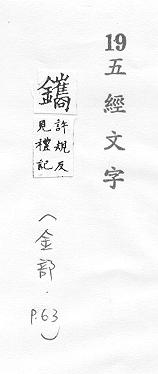 19五經文字
鑴
許規反
見禮記
(金部．P.63)